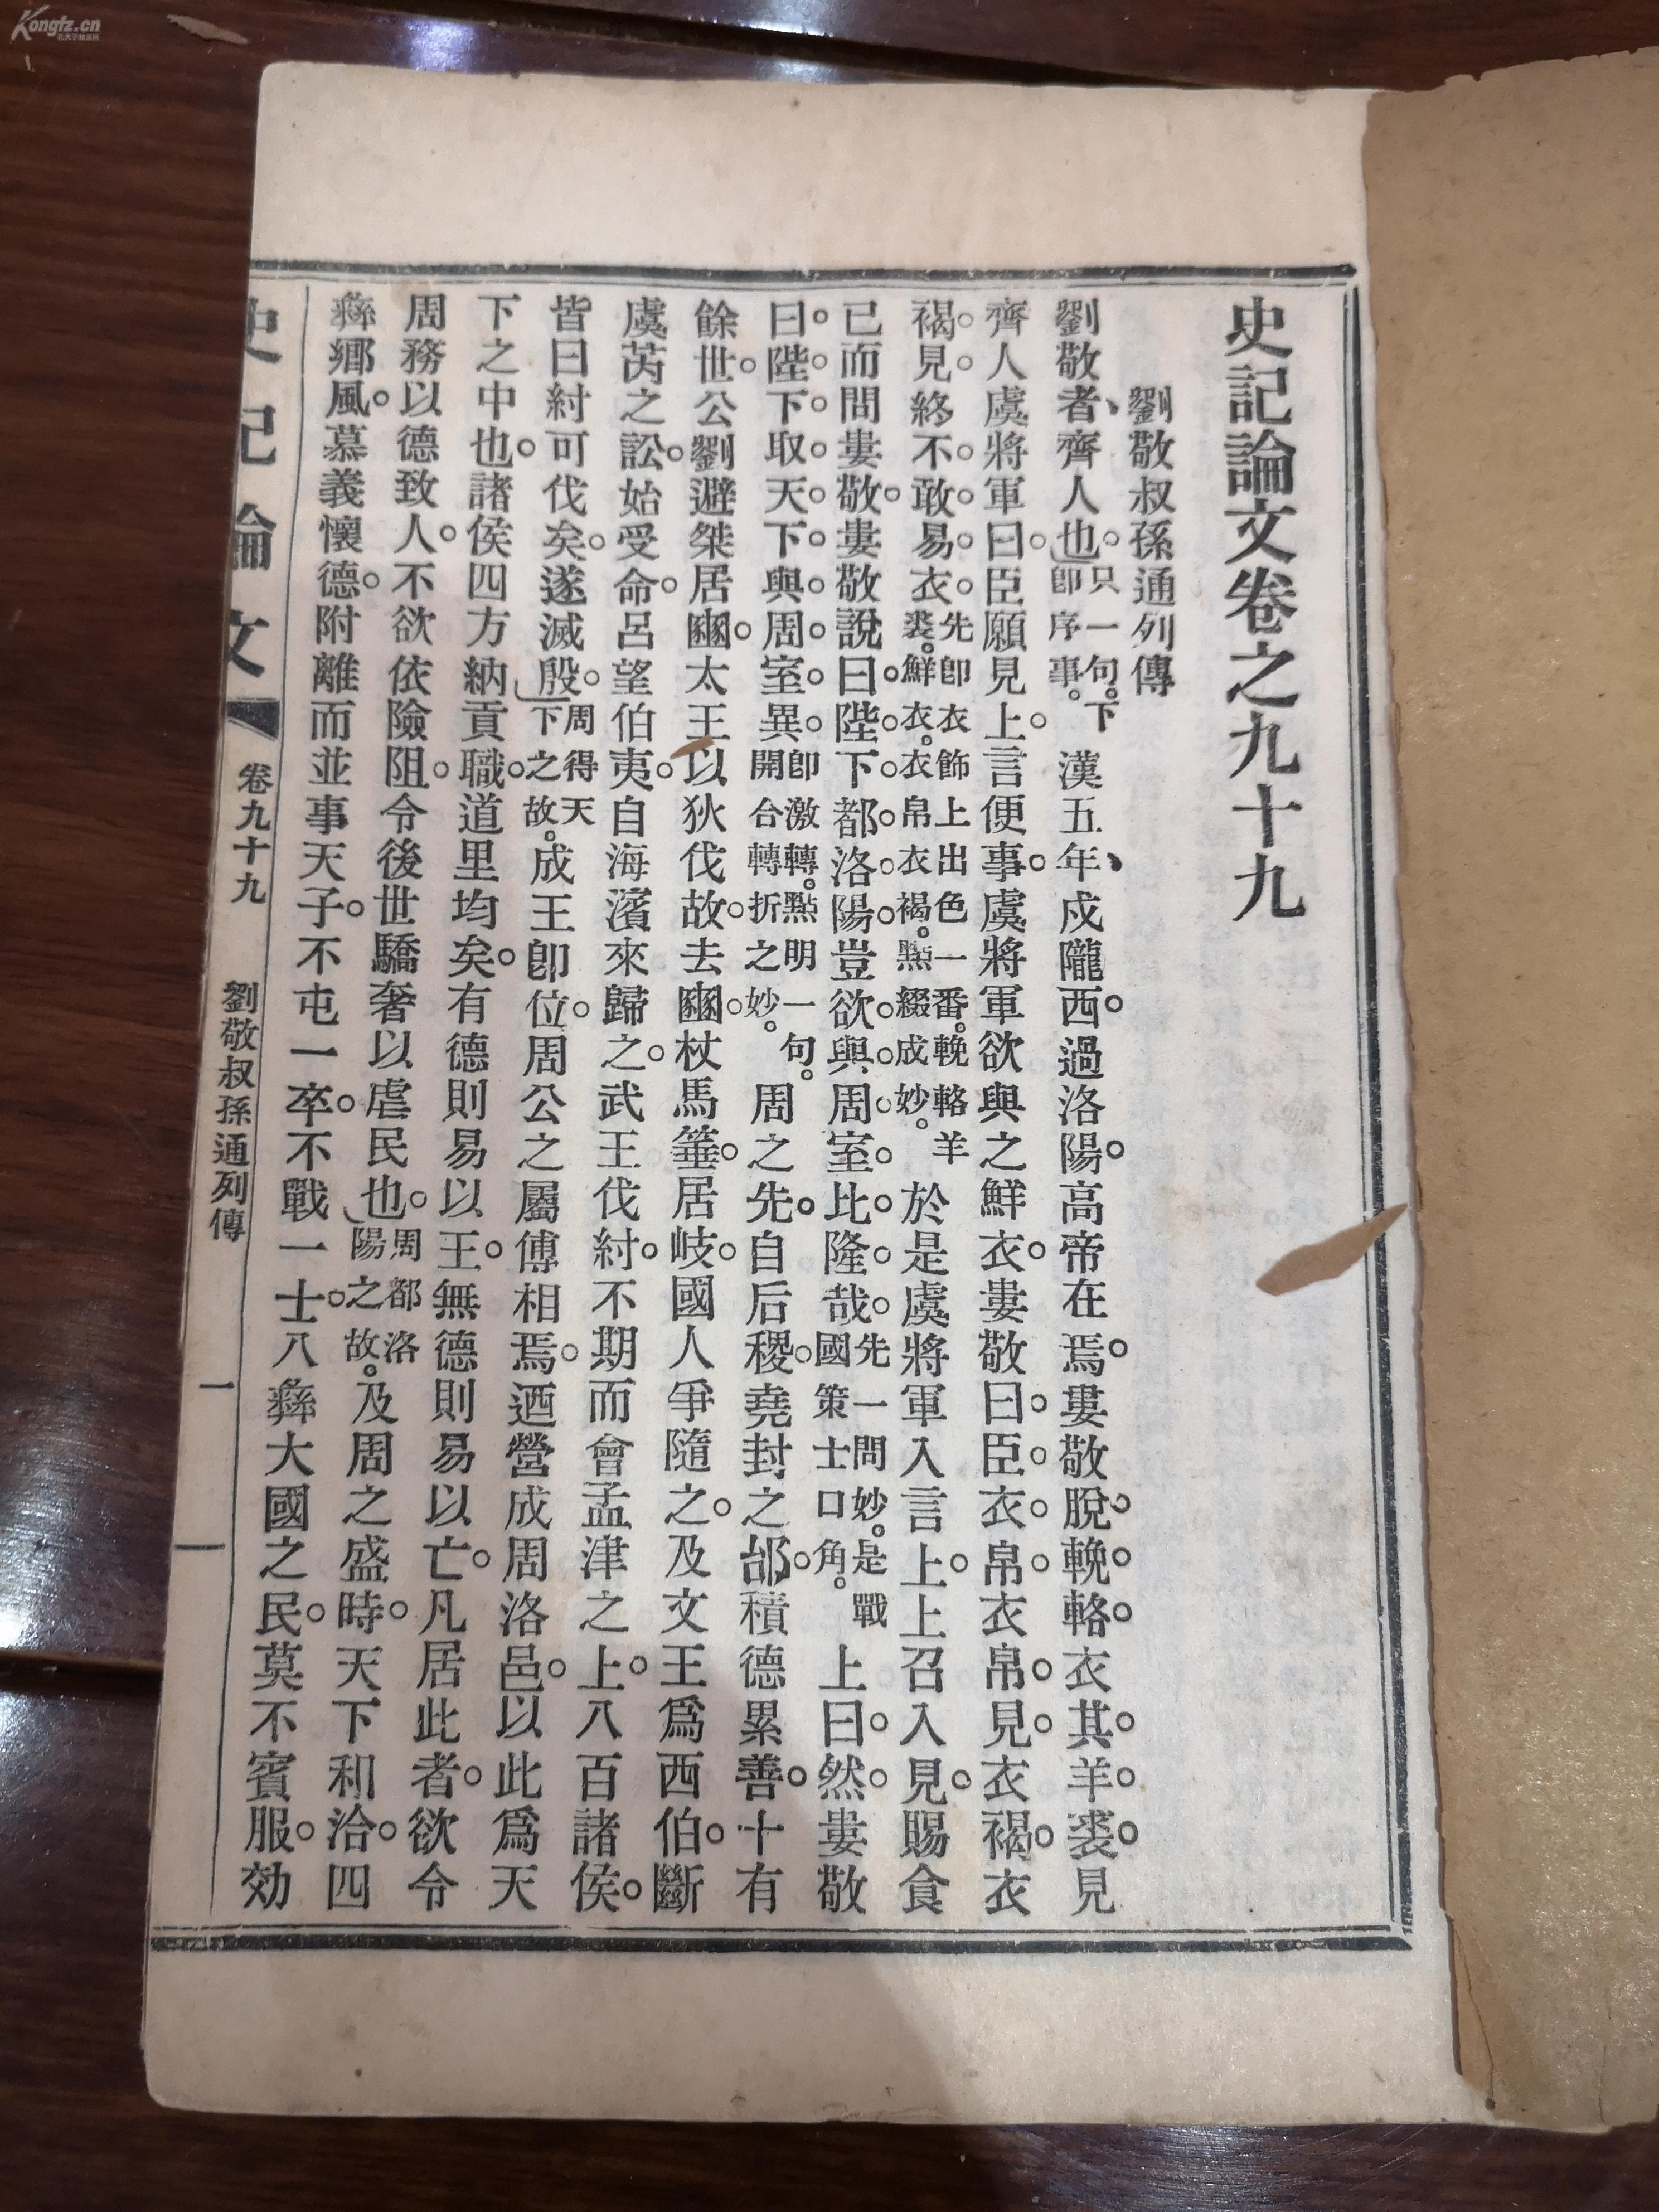 史記論文卷之九十九
劉敬叔孫通列傳
劉敬者、齊人也。只一句。下卽序事。漢五年、戍隴西。過洛陽。高帝在焉。婁敬脫輓輅。衣其羊裘。見
齊人虞將軍曰。臣願見上。言便事。虞將軍欲與之鮮衣。婁敬曰。臣。衣。帛。衣帛。見。衣褐。衣
褐。見。終不。敢。易。衣。先卽衣飾上出色一番。輓輅羊裘。鮮衣。衣帛衣褐。點綴成妙。於是虞將軍入言上。上召入見。賜食
已而問婁敬。婁敬說曰。陛。下。都。洛。陽。豈欲。與。周。室。比。隆。哉。先一問妙。是戰國策士口角。上曰。然。婁敬
曰。陛。下。取。天。下。與。周。室。異。卽激轉。點明一句。開合轉折之妙。周之先。自后稷。堯封之邰。積德累善。十有
餘世。公劉避桀居豳。太王以狄伐故。去豳。杖馬箠。居岐。國人爭隨之。及文王爲西伯。斷
虞芮之訟。始受命。呂望伯夷。自海濱來歸之。武王伐紂。不期而會孟津之上。八百諸侯。
皆曰紂可伐矣。遂滅殷。周得天下之故。成王卽位。周公之屬傅相焉。迺營成周洛邑。以此爲天
下之中也。諸侯四方納貢職。道里均矣。有德則易以王。無德則易以亡。凡居此者。欲令
周務以德致人。不欲依險阻。令後世驕奢以虐民也。周都洛陽之故。及周之盛時。天下和洽。四
彝鄉風。慕義懷德。附離而並事天子。不屯一卒。不戰一士。八彝大國之民。莫不賓服。効
史記論文
卷九十九
劉敬叔孫通列傳
一
Kongfz.cn